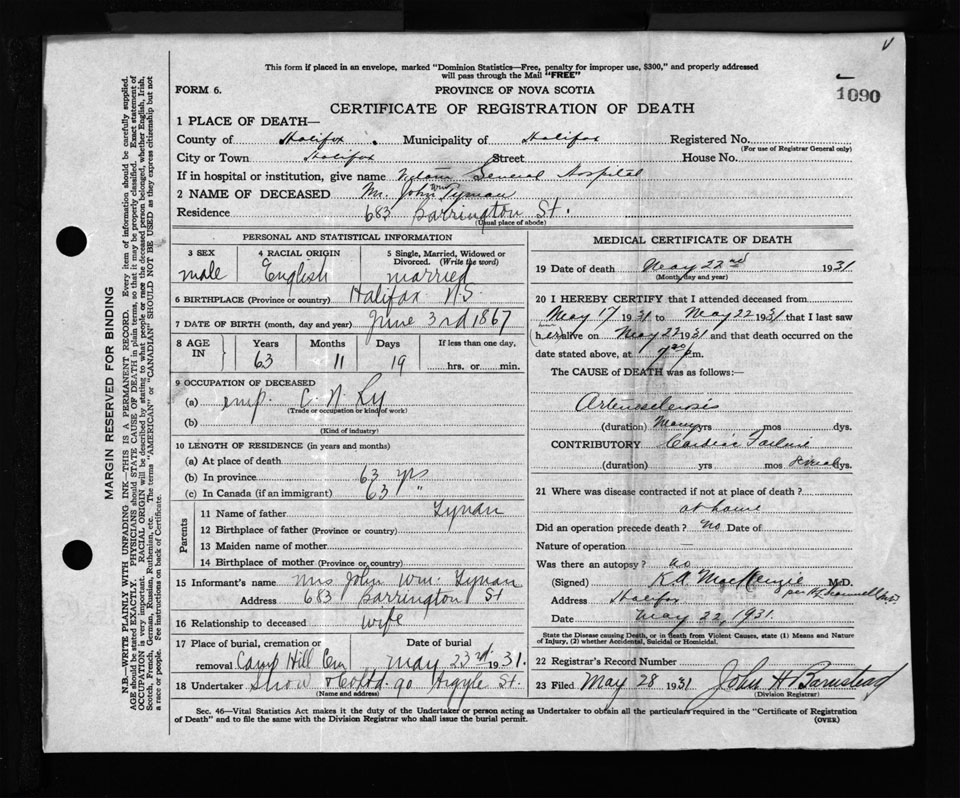 This form if placed in an envelope, marked "Dominion Statistics—Free, penalty for improper use, $300," and properly addressed
will pass through the Mail "FREE"
FORM 6.
PROVINCE OF NOVA SCOTIA
1090
CERTIFICATE OF REGISTRATION OF DEATH
1 PLACE OF DEATH—
County of Halifax Municipality of Halifax Registered No.
(For use of Registrar General only)
City or Town Halifax Street House No.
If in hospital or institution, give name General Hospital
2 NAME OF DECEASED Mr. John Wm Tynan
Residence 683 Barrington St.
(Usual place of abode)
PERSONAL AND STATISTICAL INFORMATION
3 SEX male
4 RACIAL ORIGIN English
5 Single, Married, Widowed or Divorced. (Write the word) married
6 BIRTHPLACE (Province or country) Halifax N.S.
7 DATE OF BIRTH (month, day and year) June 3rd 1867
8 AGE IN Years Months Days If less than one day,
63 11 19 hrs. or min.
9 OCCUPATION OF DECEASED
(a) emp. C. N. Ry
(Trade or occupation or kind of work)
(b)
(Kind of industry)
10 LENGTH OF RESIDENCE (in years and months)
(a) At place of death
(b) In province 63 yrs
(c) In Canada (if an immigrant) 63 "
Parents
11 Name of father Tynan
12 Birthplace of father (Province or country)
13 Maiden name of mother
14 Birthplace of mother (Province or country)
15 Informant's name Mrs John Wm. Tynan
Address 683 Barrington St
16 Relationship to deceased wife
17 Place of burial, cremation or removal Camp Hill Cem
Date of burial May 23rd 1931.
18 Undertaker Snow & Co Ltd. 90 Argyle St.
(Name and address)
MEDICAL CERTIFICATE OF DEATH
19 Date of death May 22nd 1931
(Month, day and year)
20 I HEREBY CERTIFY that I attended deceased from
May 17 1931 to May 22 1931 that I last saw
alive on May 22 1931 and that death occurred on
date stated above, at p.m.
The CAUSE of DEATH was as follows:—
Arteriosclerosis
(duration) Many yrs mos dys.
CONTRIBUTORY Cardiac Failure
(duration) yrs mos dys.
21 Where was disease contracted if not at place of death?
at home
Did an operation precede death? No Date of
Nature of operation —
Was there an autopsy? no
(Signed) K.A. MacKenzie M.D.
Address Halifax
Date May 22, 1931.
State the Disease causing Death, or in death from Violent Causes, state (1) Means and Nature of Injury, (2) whether Accidental, Suicidal or Homicidal.
22 Registrar's Record Number
23 Filed May 28 1931 John H Barnstead
(Division Registrar)
Sec. 46—Vital Statistics Act makes it the duty of the Undertaker or person acting as Undertaker to obtain all the particulars required in the "Certificate of Registration
of Death" and to file the same with the Division Registrar who shall issue the burial permit.
(OVER)
MARGIN RESERVED FOR BINDING
N.B.—WRITE PLAINLY WITH UNFADING INK—THIS IS A PERMANENT RECORD. Every item of information should be carefully supplied.
AGE should be stated EXACTLY. PHYSICIANS should STATE CAUSE OF DEATH in plain terms, so that it may be properly classified. Exact statement of
OCCUPATION is very important. RACIAL ORIGIN will be described by stating to what people or race the deceased person belonged, whether English, Irish,
Scotch, French, German, Russian, Ruthenian, etc. The terms "AMERICAN" or "CANADIAN" SHOULD NOT BE USED as they express citizenship but not
a race or people. See instructions on back of Certificate.